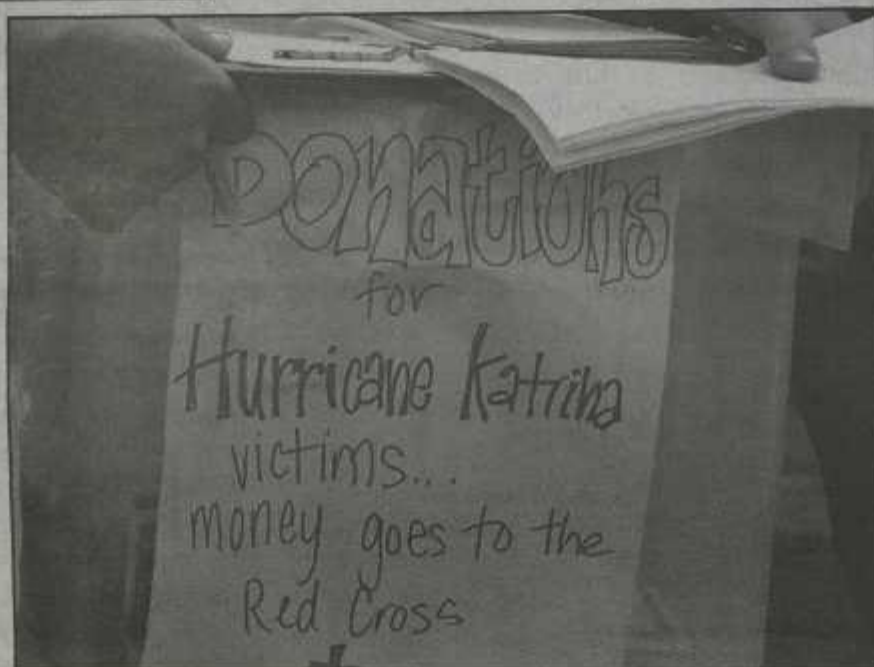 Donations
for
Hurricane Katrina
victims...
money goes to the
Red Cross